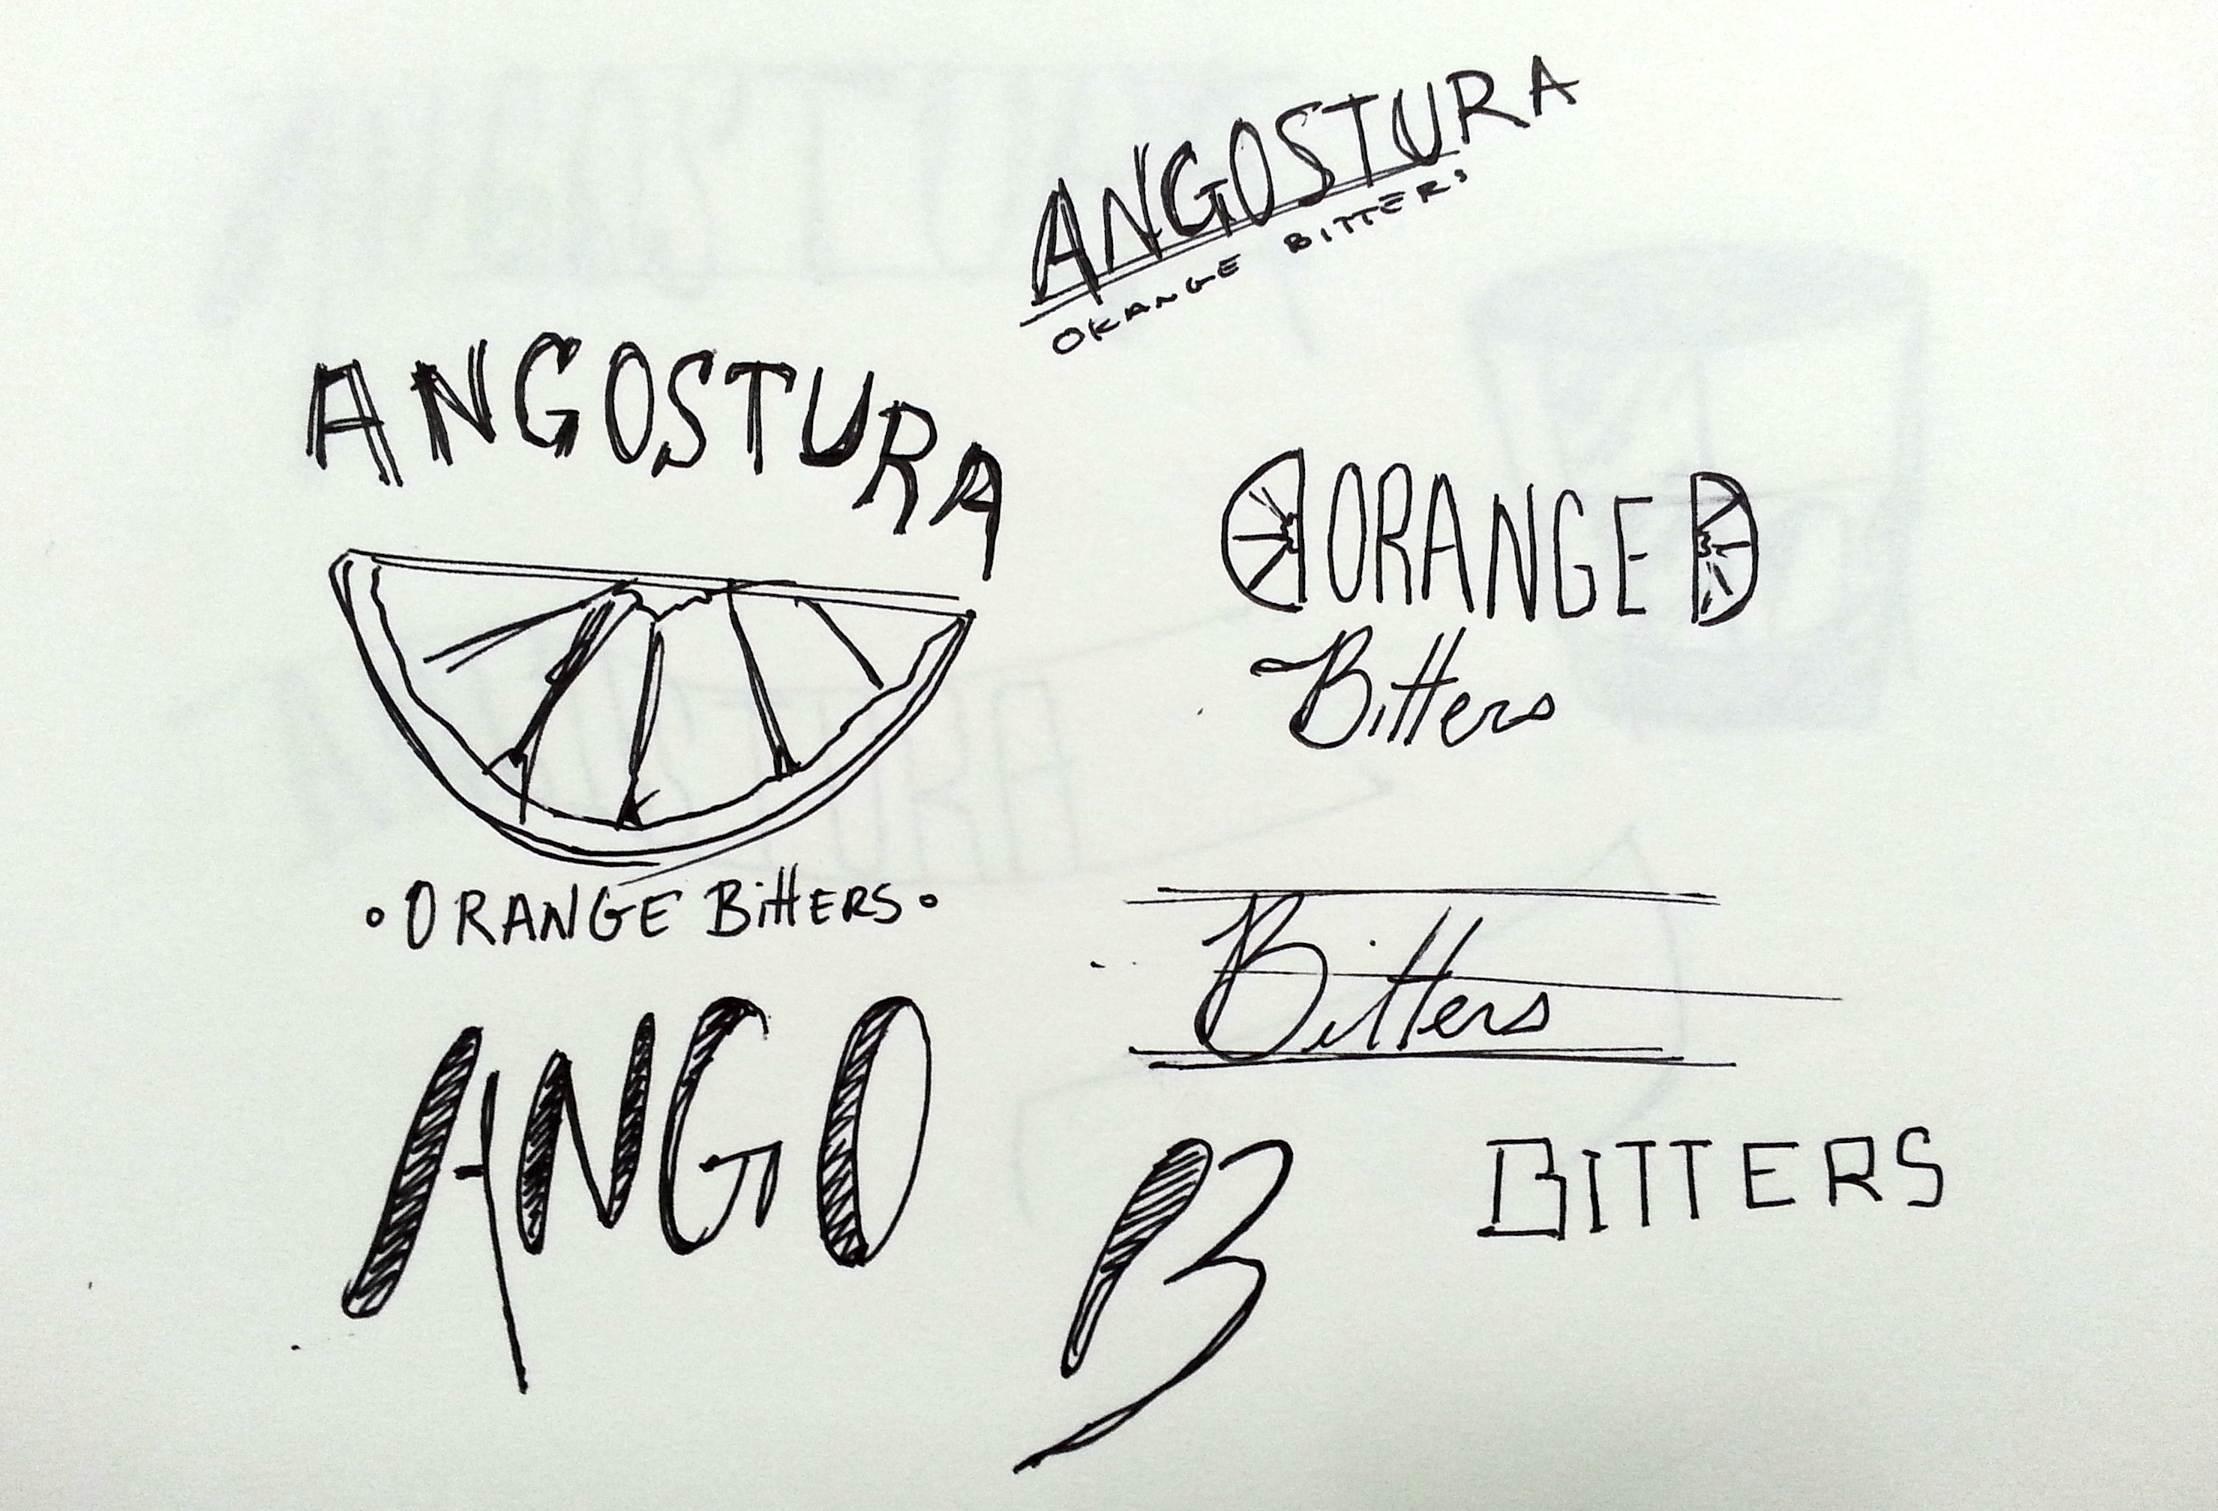 ANGOSTURA
ORANGE BITTERS
ANGOSTURA
ORANGE
Bitters
• ORANGE BittERS •
Bitters
ANGO
B
BITTERS